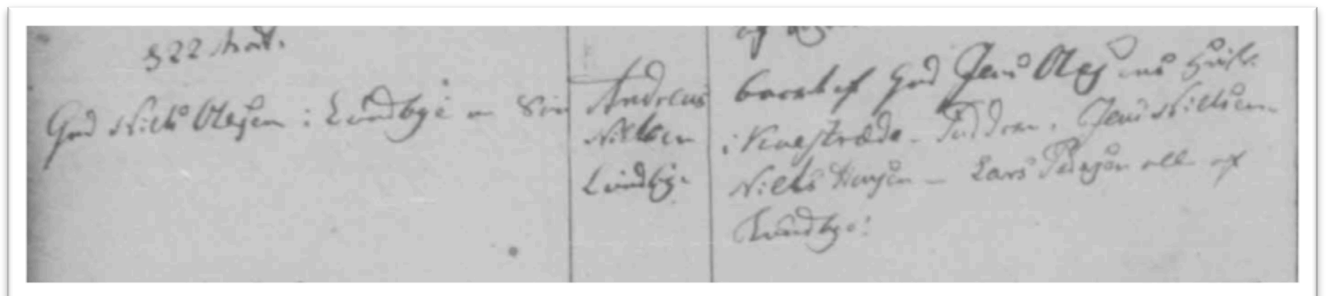 d 22 Mart.
Gmd Niels Olesen i Lundbye en Søn
Andreas
Nielsen
Lundbye
baaret af Gmd Jens Olesens Hustr.
i Knæstræde. Faddere, Jens Nielsen
Niels Hansen – Lars Pedersen alle af
Lundbye.